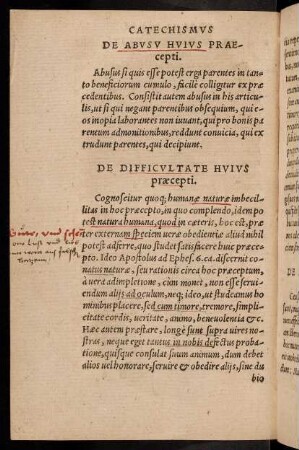 CATECHISMVS
DE ABVSV HVIVS PRAE-
cepti.
Abusus si quis esse potest erga parentes in tan-
to beneficiorum cumulo, facile colligitur ex præ-
cedentibus. Consistit autem abusus in his articu-
lis, ut si qui negant parentibus obsequium, qui e-
os inopia laborantes non iuuant, qui pro bonis pa
rentum admonitionibus, reddunt conuicia, qui ex
trudunt parentes, qui decipiunt.
DE DIFFICVLTATE HVIVS
præcepti.
Cognoscitur quoq; humanæ naturæ imbecil-
litas in hoc præcepto, in quo complendo, idem po
test natura humana, quod in cæteris, hoc est, præ
ter externam speciem ueræ obedientiæ aliud nihil
potest adferre, quo studet satisfacere huic præce-
pto. Ideo Apostolus ad Ephes. 6. ca. discernit co
natus naturæ, seu rationis circa hoc præceptum,
à uera adimpletione, cùm monet, non esse serui-
endum alijs ad oculum, neq; ideo, ut studeamus ho
minibus placere, sed cum timore, tremore, simpli-
citate cordis, ueritate, animo, beneuolencia &c.
Hæc autem præstare, longè sunt supra uires no-
stras, neque eget tantus in nobis defectus proba-
tione, quisque consulat suum animum, dum debet
alios uel honorare, seruire & obedire alijs, sine du
bio
DE